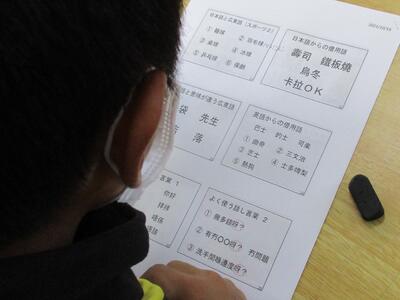 日本語と広東語（スポーツ2）
② 羽毛球
③ 桌球 ④ 冰球
⑤ 乒乓球 ⑥ 保齡
日本語からの借用語
壽司 鐵板燒
烏冬
卡拉OK
と意味が違う広東語
袋 先生
落
英語からの借用語
巴士 的士 可樂
① 曲奇 ② 三文治
③ 芝士 ④ 士多啤梨
⑤ 熱狗
言葉 1
你好
よく使う話し言葉 2
① 幾多錢呀？
② 有冇〇〇呀？ 冇問題
③ 洗手間喺邊度呀？